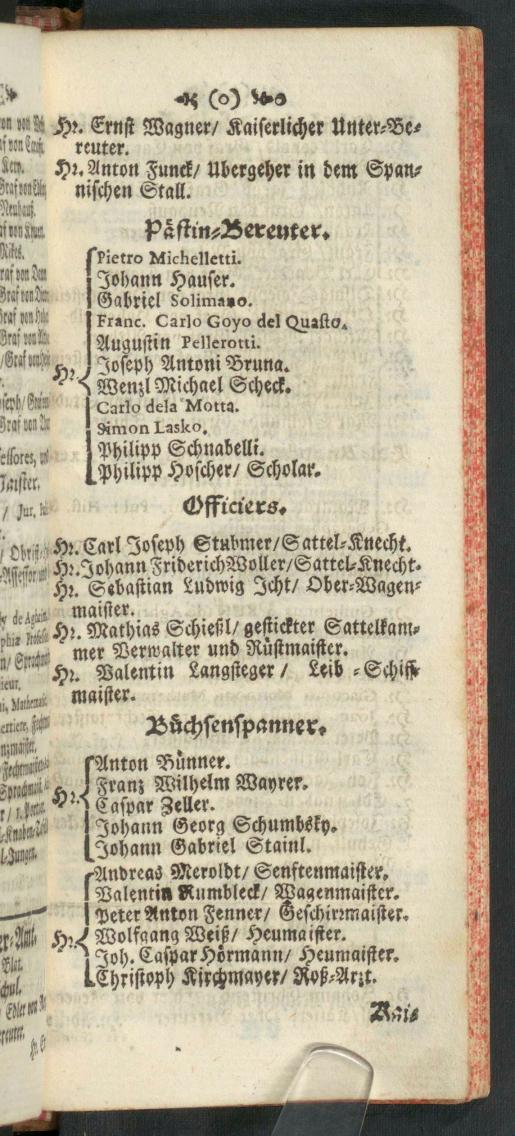 (0)
Hr. Ernst Wagner/ Kaiserlicher Unter-Be-
reuter.
Hr. Anton Funck/ Ubergeher in dem Span-
nischen Stall.
Pästin-Bereuter.
Pietro Michelletti.
Johann Hauser.
Gabriel Solimano.
Franc. Carlo Goyo del Quasto.
Augustin Pellerotti.
Joseph Antoni Bruna.
Hr.
Wenzl Michael Scheck.
Carlo dela Motta.
Simon Lasko.
Philipp Schnabelli.
Philipp Hoscher/ Scholar.
Officiers.
Hr. Carl Joseph Stubmer/Sattel-Knecht.
Hr. Johann Friderich Woller/Sattel-Knecht.
Hr. Sebastian Ludwig Icht/ Ober-Wagen-
maister.
Hr. Mathias Schießl/ gestickter Sattelkam-
mer Verwalter und Rüstmaister.
Hr. Valentin Langsteger/ Leib-Schiff
maister.
Büchsenspanner.
Anton Bünner.
Franz Wilhelm Wayrer.
Hr.
Caspar Zeller.
Johann Georg Schumbsky.
Johann Gabriel Stainl.
Andreas Meroldt/ Senftenmaister.
Valentin Rumbleck/ Wagenmaister.
Peter Anton Fenner/ Geschirrmaister.
Hr.
Wolfgang Weiß/ Heumaister.
Joh. Caspar Hörmann/ Heumaister.
Christoph Kirchmayer/ Roß-Arzt.
Rais